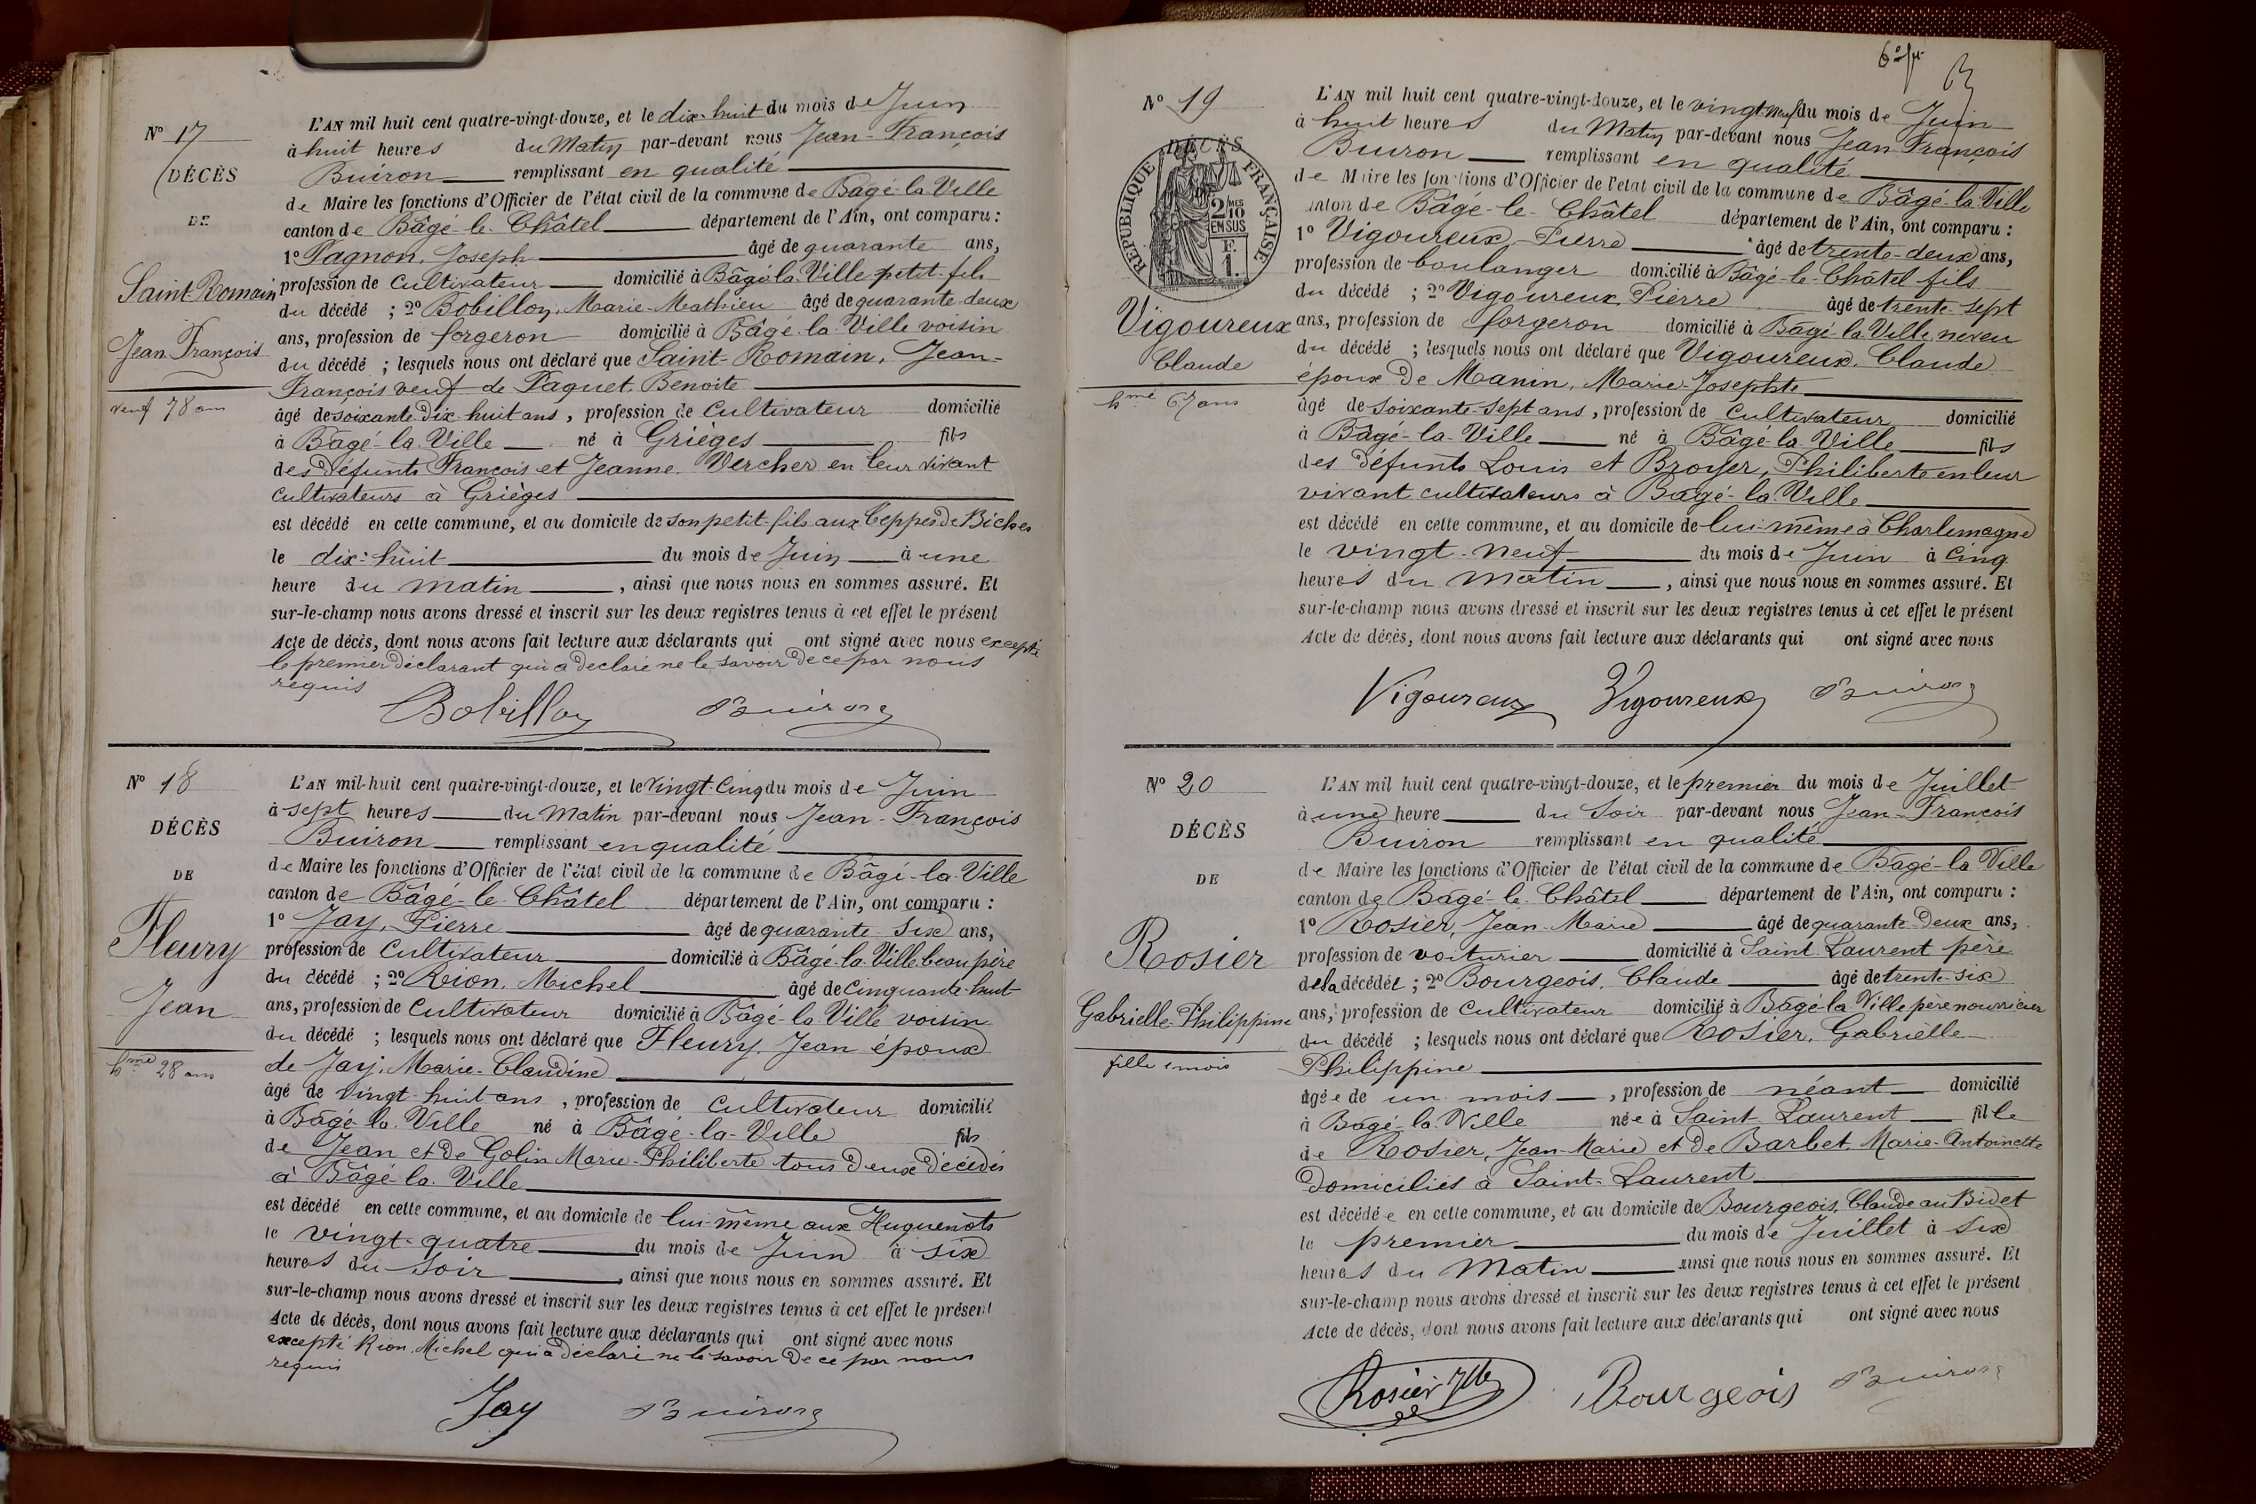 N° 17
DÉCÈS
DE
Saint-Romain
Jean François
veuf 78 ans
L'AN mil huit cent quatre-vingt-douze, et le dix-huit du mois de Juin
à huit heures du Matin par-devant nous Jean-François
Buiron remplissant en qualité
de Maire les fonctions d'Officier de l'état civil de la commune de Bâgé-la-Ville
canton de Bâgé-le-Châtel département de l'Ain, ont comparu :
1° Pagnon, Joseph âgé de quarante ans,
profession de cultivateur domicilié à Bâgé-la-Ville petit-fils
du décédé ; 2° Bobillon, Marie-Mathieu âgé de quarante-deux
ans, profession de forgeron domicilié à Bâgé-la-Ville voisin
du décédé ; lesquels nous ont déclaré que Saint-Romain, Jean-
François veuf de Paquet Benoite
âgé de soixante-dix-huit ans, profession de cultivateur domicilié
à Bâgé-la-Ville né à Grièges fils
des défunts François et Jeanne Vercher en leur vivant
cultivateurs à Grièges
est décédé en cette commune, et au domicile de son petit-fils aux Ceppes de Biches
le dix-huit du mois de Juin à une
heure du matin, ainsi que nous nous en sommes assuré. Et
sur-le-champ nous avons dressé et inscrit sur les deux registres tenus à cet effet le présent
Acte de décès, dont nous avons fait lecture aux déclarants qui ont signé avec nous excepté
le premier déclarant qui a déclaré ne le savoir de ce par nous
requis
Bobillon Buiron
N° 18
DÉCÈS
DE
Fleury
Jean
hme 28 ans
L'AN mil-huit cent quatre-vingt-douze, et le vingt-cinq du mois de Juin
à sept heures du matin par-devant nous Jean-François
Buiron remplissant en qualité
de Maire les fonctions d'Officier de l'état civil de la commune de Bâgé-la-Ville
canton de Bâgé-le-Châtel département de l'Ain, ont comparu :
1° Jay, Pierre âgé de quarante-six ans,
profession de cultivateur domicilié à Bâgé-la-Ville beau père
du décédé ; 2° Rion, Michel âgé de cinquante-huit
ans, profession de cultivateur domicilié à Bâgé-la-Ville voisin
du décédé ; lesquels nous ont déclaré que Fleury, Jean époux
de Jay, Marie-Claudine
âgé de vingt-huit ans, profession de cultivateur domicilié
à Bâgé-la-Ville né à Bâgé-la-Ville fils
de Jean et de Golin Marie-Philiberte tous deux décédés
à Bâgé-la-Ville
est décédé en cette commune, et au domicile de lui-même aux Huguenots
le vingt-quatre du mois de Juin à six
heures du soir, ainsi que nous nous en sommes assuré. Et
sur-le-champ nous avons dressé et inscrit sur les deux registres tenus à cet effet le présent
Acte de décès, dont nous avons fait lecture aux déclarants qui ont signé avec nous
excepté Rion Michel qui a déclaré ne le savoir de ce par nous
requis
Jay Buiron
N° 19
RÉPUBLIQUE FRANÇAISE
DÉCÈS
2/10MES
EN SUS
F.
1.
Vigoureux
Claude
hme 67 ans
L'AN mil huit cent quatre-vingt-douze, et le vingt-neuf du mois de Juin
à huit heures du Matin par-devant nous Jean-François
Buiron remplissant en qualité
de Maire les fonctions d'Officier de l'état civil de la commune de Bâgé-la-Ville
canton de Bâgé-le-Châtel département de l'Ain, ont comparu :
1° Vigoureux, Pierre âgé de trente-deux ans,
profession de boulanger domicilié à Bâgé-le-Châtel fils
du décédé ; 2° Vigoureux, Pierre âgé de trente-sept
ans, profession de forgeron domicilié à Bâgé-la-Ville, neveu
du décédé ; lesquels nous ont déclaré que Vigoureux, Claude
époux de Manin, Marie-Josephte
âgé de soixante-sept ans, profession de cultivateur domicilié
à Bâgé-la-Ville né à Bâgé-la-Ville fils
des défunts Louis et Broyer, Philiberte en leur
vivant cultivateurs à Bâgé-la-Ville
est décédé en cette commune, et au domicile de lui-même à Charlemagne
le vingt-neuf du mois de Juin à cinq
heures du matin, ainsi que nous nous en sommes assuré. Et
sur-le-champ nous avons dressé et inscrit sur les deux registres tenus à cet effet le présent
Acte de décès, dont nous avons fait lecture aux déclarants qui ont signé avec nous
Vigoureux Vigoureux Buiron
N° 20
DÉCÈS
DE
Rosier
Gabrielle-Philippine
fille 1 mois
L'AN mil huit cent quatre-vingt-douze, et le premier du mois de Juillet
à une heure du Soir par-devant nous Jean-François
Buiron remplissant en qualité
de Maire les fonctions d'Officier de l'état civil de la commune de Bâgé-la-Ville
canton de Bâgé-le-Châtel département de l'Ain, ont comparu :
1° Rosier, Jean-Marie âgé de quarante-deux ans,
profession de voiturier domicilié à Saint-Laurent père
de la décédée ; 2° Bourgeois, Claude âgé de trente-six
ans, profession de cultivateur domicilié à Bâgé-la-Ville père nourricier
du décédé ; lesquels nous ont déclaré que Rosier, Gabrielle-
Philippine
âgée de un mois, profession de néant domicilié
à Bâgé-la-Ville née à Saint-Laurent fille
de Rosier, Jean-Marie et de Barbet, Marie-Antoinette
domiciliés à Saint-Laurent
est décédée en cette commune, et au domicile de Bourgeois, Claude au Bidet
le premier du mois de Juillet à six
heures du Matin ainsi que nous nous en sommes assuré. Et
sur-le-champ nous avons dressé et inscrit sur les deux registres tenus à cet effet le présent
Acte de décès, dont nous avons fait lecture aux déclarants qui ont signé avec nous
Rosier Bourgeois Buiron